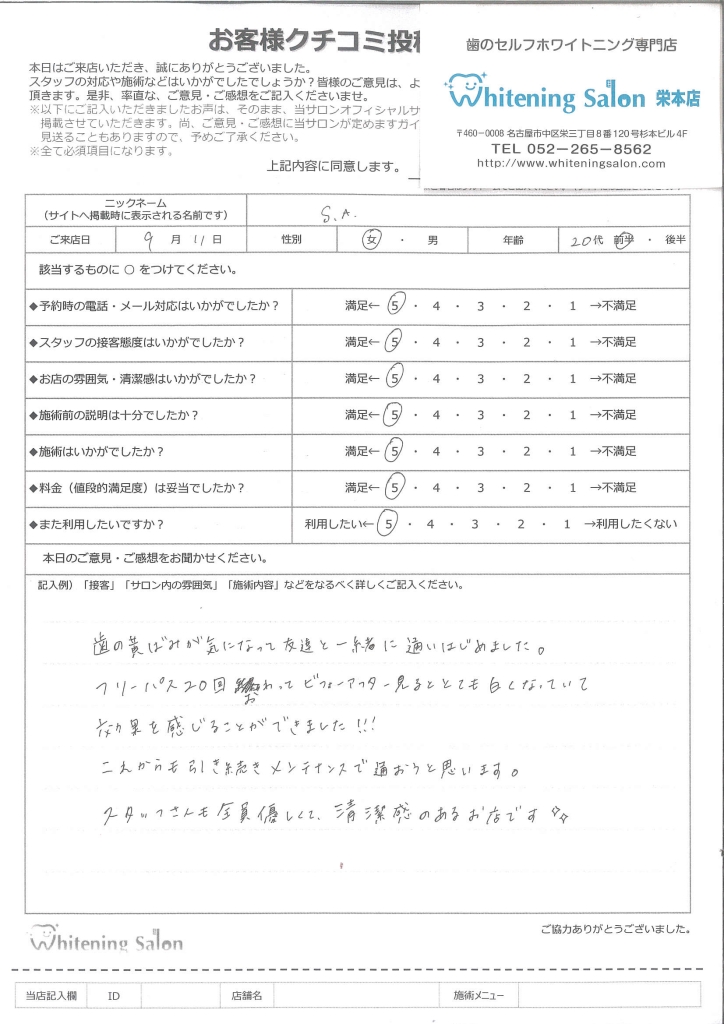 お客様クチコミ投稿
本日はご来店いただき、誠にありがとうございました。
スタッフの対応や施術などはいかがでしたでしょうか?皆様のご意見は、よ
頂きます。是非、率直な、ご意見・ご感想をご記入くださいませ。
※以下にご記入いただきましたお声は、そのまま、当サロンオフィシャルサ
掲載させていただきます。尚、ご意見・ご感想に当サロンが定めますガイ
見送ることもありますので、予めご了承ください。
※全て必須項目になります。
上記内容に同意します。
歯のセルフホワイトニング専門店
Whitening Salon 栄本店
〒460-0008 名古屋市中区栄三丁目8番120号杉本ビル4F
TEL 052-265-8562
http://www.whiteningsalon.com
ニックネーム
(サイトへ掲載時に表示される名前です)
S.A.
ご来店日 9 月 11 日 性別 女 ・ 男 年齢 20代 前半 ・ 後半
該当するものに ○ をつけてください。
◆予約時の電話・メール対応はいかがでしたか? 満足← 5 ・ 4 ・ 3 ・ 2 ・ 1 →不満足
◆スタッフの接客態度はいかがでしたか? 満足← 5 ・ 4 ・ 3 ・ 2 ・ 1 →不満足
◆お店の雰囲気・清潔感はいかがでしたか? 満足← 5 ・ 4 ・ 3 ・ 2 ・ 1 →不満足
◆施術前の説明は十分でしたか? 満足← 5 ・ 4 ・ 3 ・ 2 ・ 1 →不満足
◆施術はいかがでしたか? 満足← 5 ・ 4 ・ 3 ・ 2 ・ 1 →不満足
◆料金(値段的満足度)は妥当でしたか? 満足← 5 ・ 4 ・ 3 ・ 2 ・ 1 →不満足
◆また利用したいですか? 利用したい← 5 ・ 4 ・ 3 ・ 2 ・ 1 →利用したくない
本日のご意見・ご感想をお聞かせください。
記入例)「接客」「サロン内の雰囲気」「施術内容」などをなるべく詳しくご記入ください。
歯の黄ばみが気になって友達と一緒に通いはじめました。
フリーパス20回おわってビフォーアフター見るととても白くなっていて
効果を感じることができました!!!
これからも引き続きメンテナンスで通おうと思います。
スタッフさんも全員優しくて、清潔感のあるお店です☆☆
ご協力ありがとうございました。
Whitening Salon
当店記入欄 ID 店舗名 施術メニュー